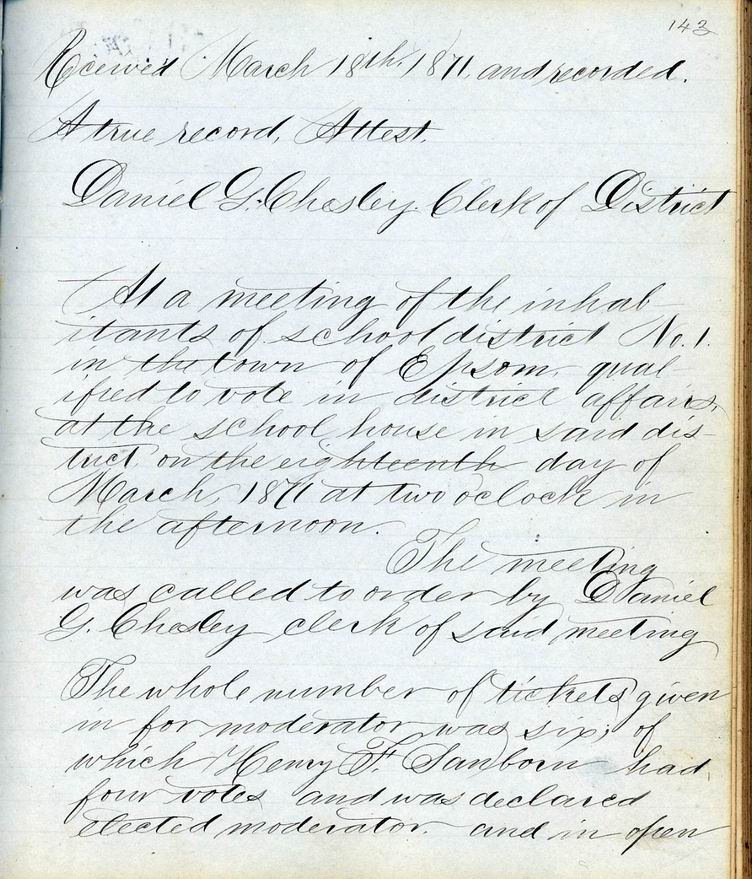 143
Received March 18th, 1871, and recorded.
A true record, Attest.
Daniel G. Chesley. Clerk of District
At a meeting of the inhab
itants of school district No. 1.
in the town of Epsom, qual-
ified to vote in district affairs,
at the school house in said dis-
trict, on the eighteenth day of
March, 1871 at two oclock in
the afternoon.
The meeting
was called to order by Daniel
G. Chesley clerk of said meeting
The whole number of tickets given
in for moderator was six; of
which Henry F. Sanborn had
four votes and was declared
elected moderator. and in open